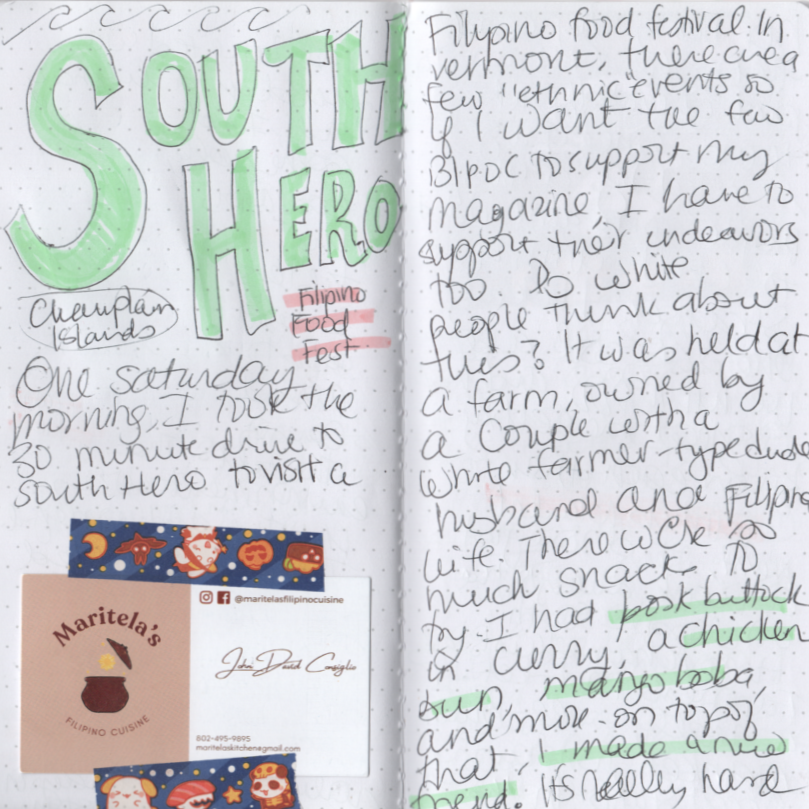 SOUTH
HERO
Champlain
Islands
Filipino
Food
Fest
One saturday
morning, I took the
30 minute drive to
South Hero to visit a
@maritelasfilipinocuisine
Maritela's
FILIPINO CUISINE
John David Consiglio
802-495-9895
maritelaskitchen@gmail.com
Filipino food festival. In
vermont, there are a
few "ethnic" events so
if I want the few
BIPOC to support my
magazine, I have to
support their endeavors
too. Do white
people think about
this? It was held at
a farm, owned by
a couple with a
white farmer-type dude
husband and Filipino
wife. There were so
much snack to
try. I had pork buttock
in curry, a chicken
bun, mango boba,
and more. on top of
that, I made a new
friend. It's really hard